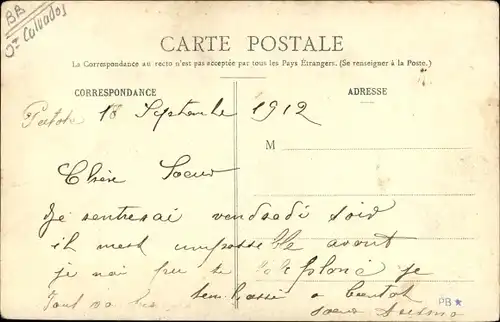 BB
Dt Calvados
CARTE POSTALE
La Correspondance au recto n'est pas acceptée par tous les Pays Étrangers. (Se renseigner à la Poste.)
CORRESPONDANCE
ADRESSE
18 Septembre 1912
M
Chère Soeur
Je rentrerai vendredi soir
il mest impossible avant
je nai pu te je
Tout va bien a bientot
soeur
PB